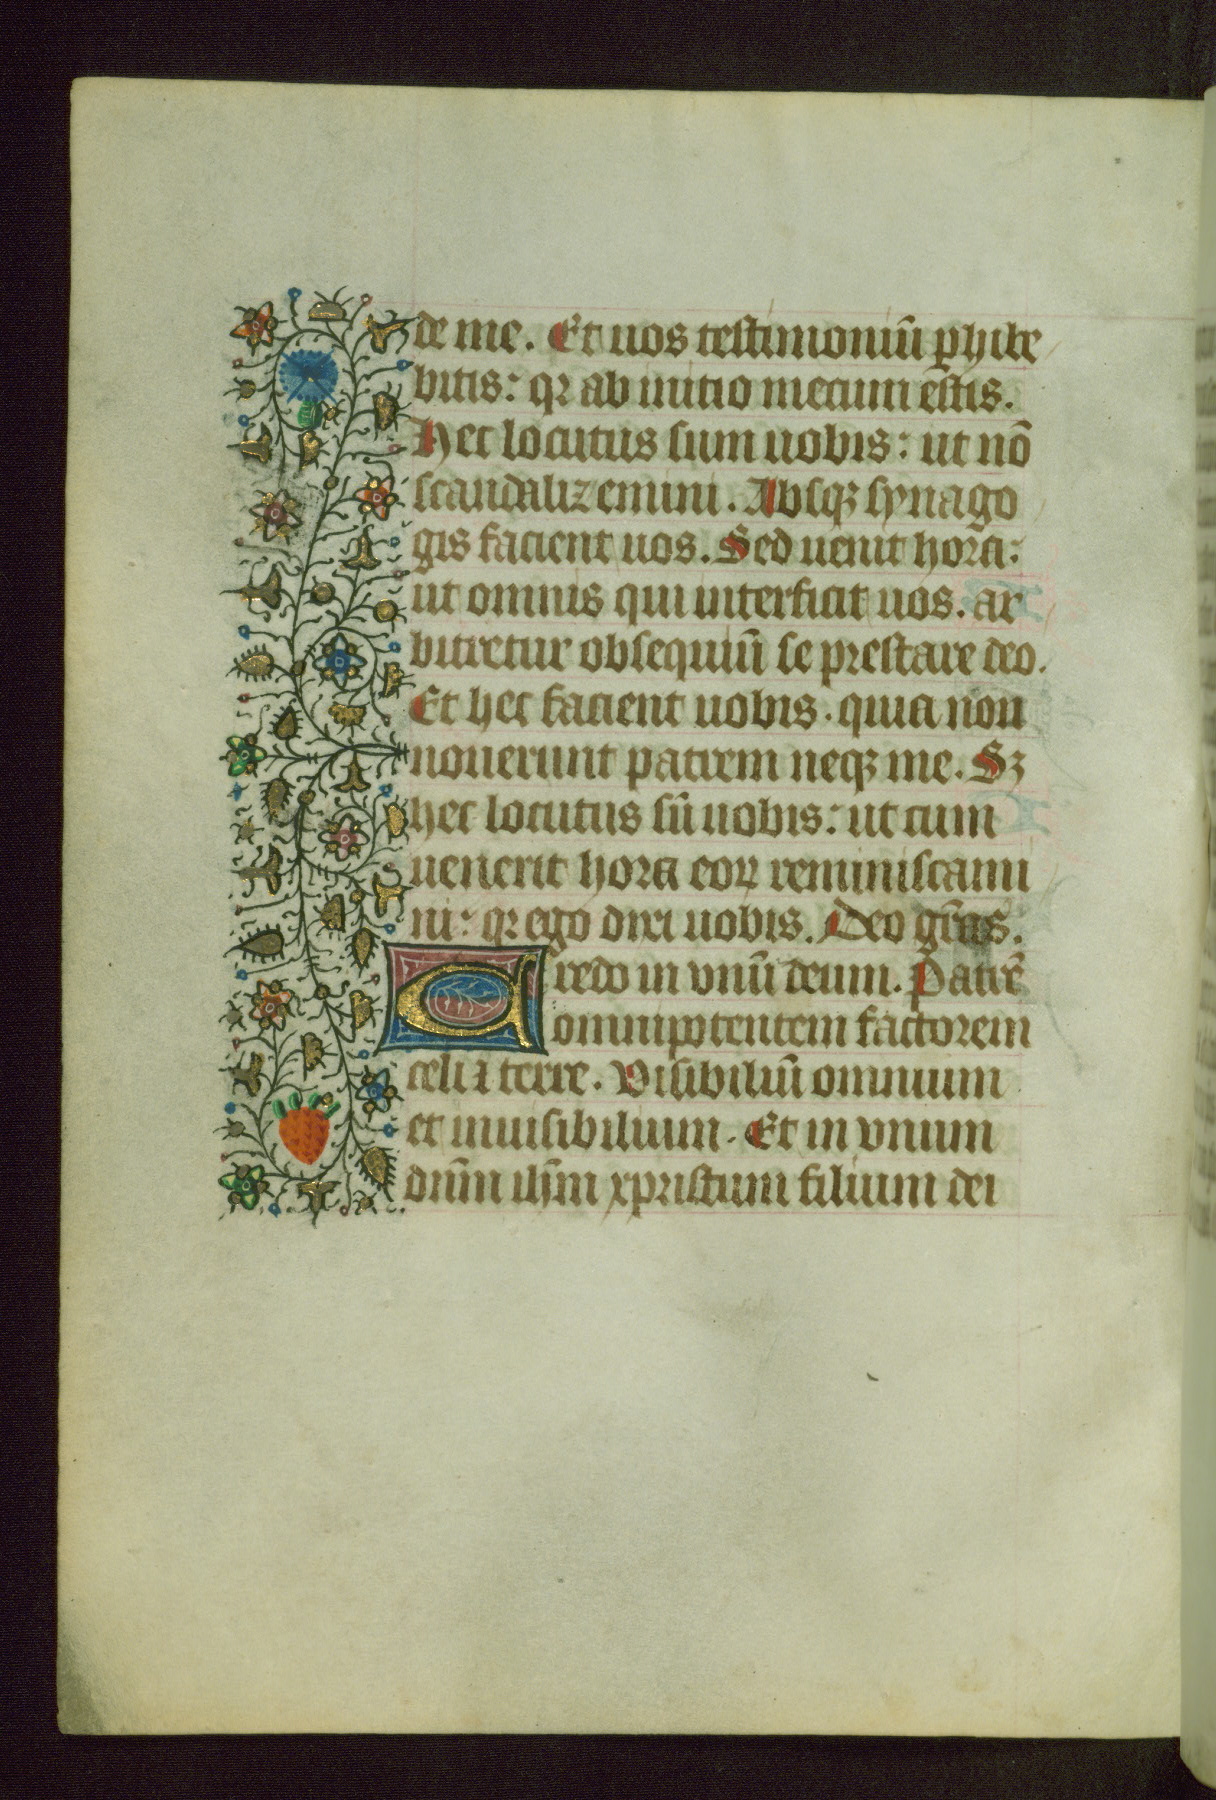 de me. Et uos testimoniū phibe
bitis: qꝛ ab initio mecum estis.
Hec locutus sum uobis: ut nō
scandalizemini. Absqꝫ synago
gis facient uos. Sed uenit hora:
ut omnis qui interficit uos. ar
bitretur obsequiū se prestare deo.
Et hec facient uobis. quia non
nouerunt patrem neqꝫ me. Sꝫ
hec locutus sū uobis: ut cum
uenerit hora eoꝝ reminiscami
ni: qꝛ ego dixi uobis. Deo gr̄as.
Credo in vnū deum. Patrē
omnipotentem factorem
celi ⁊ terre. Visibiliū omnium
et inuisibilium. Et in vnum
dn̄m ih̄m xpristum filium dei